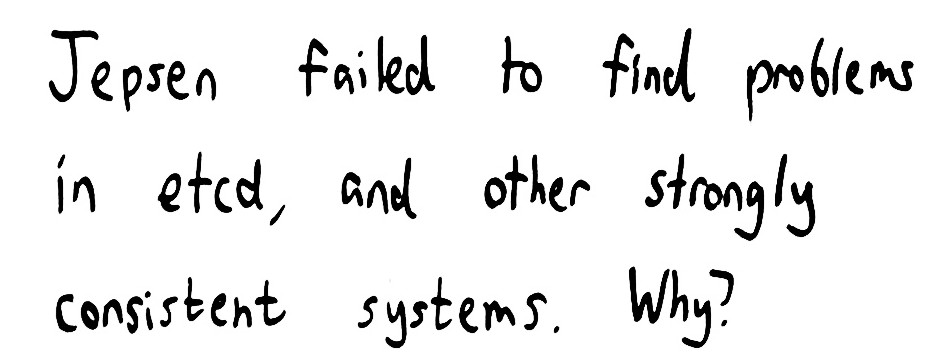 Jepsen failed to find problems
in etcd, and other strongly
consistent systems. Why?